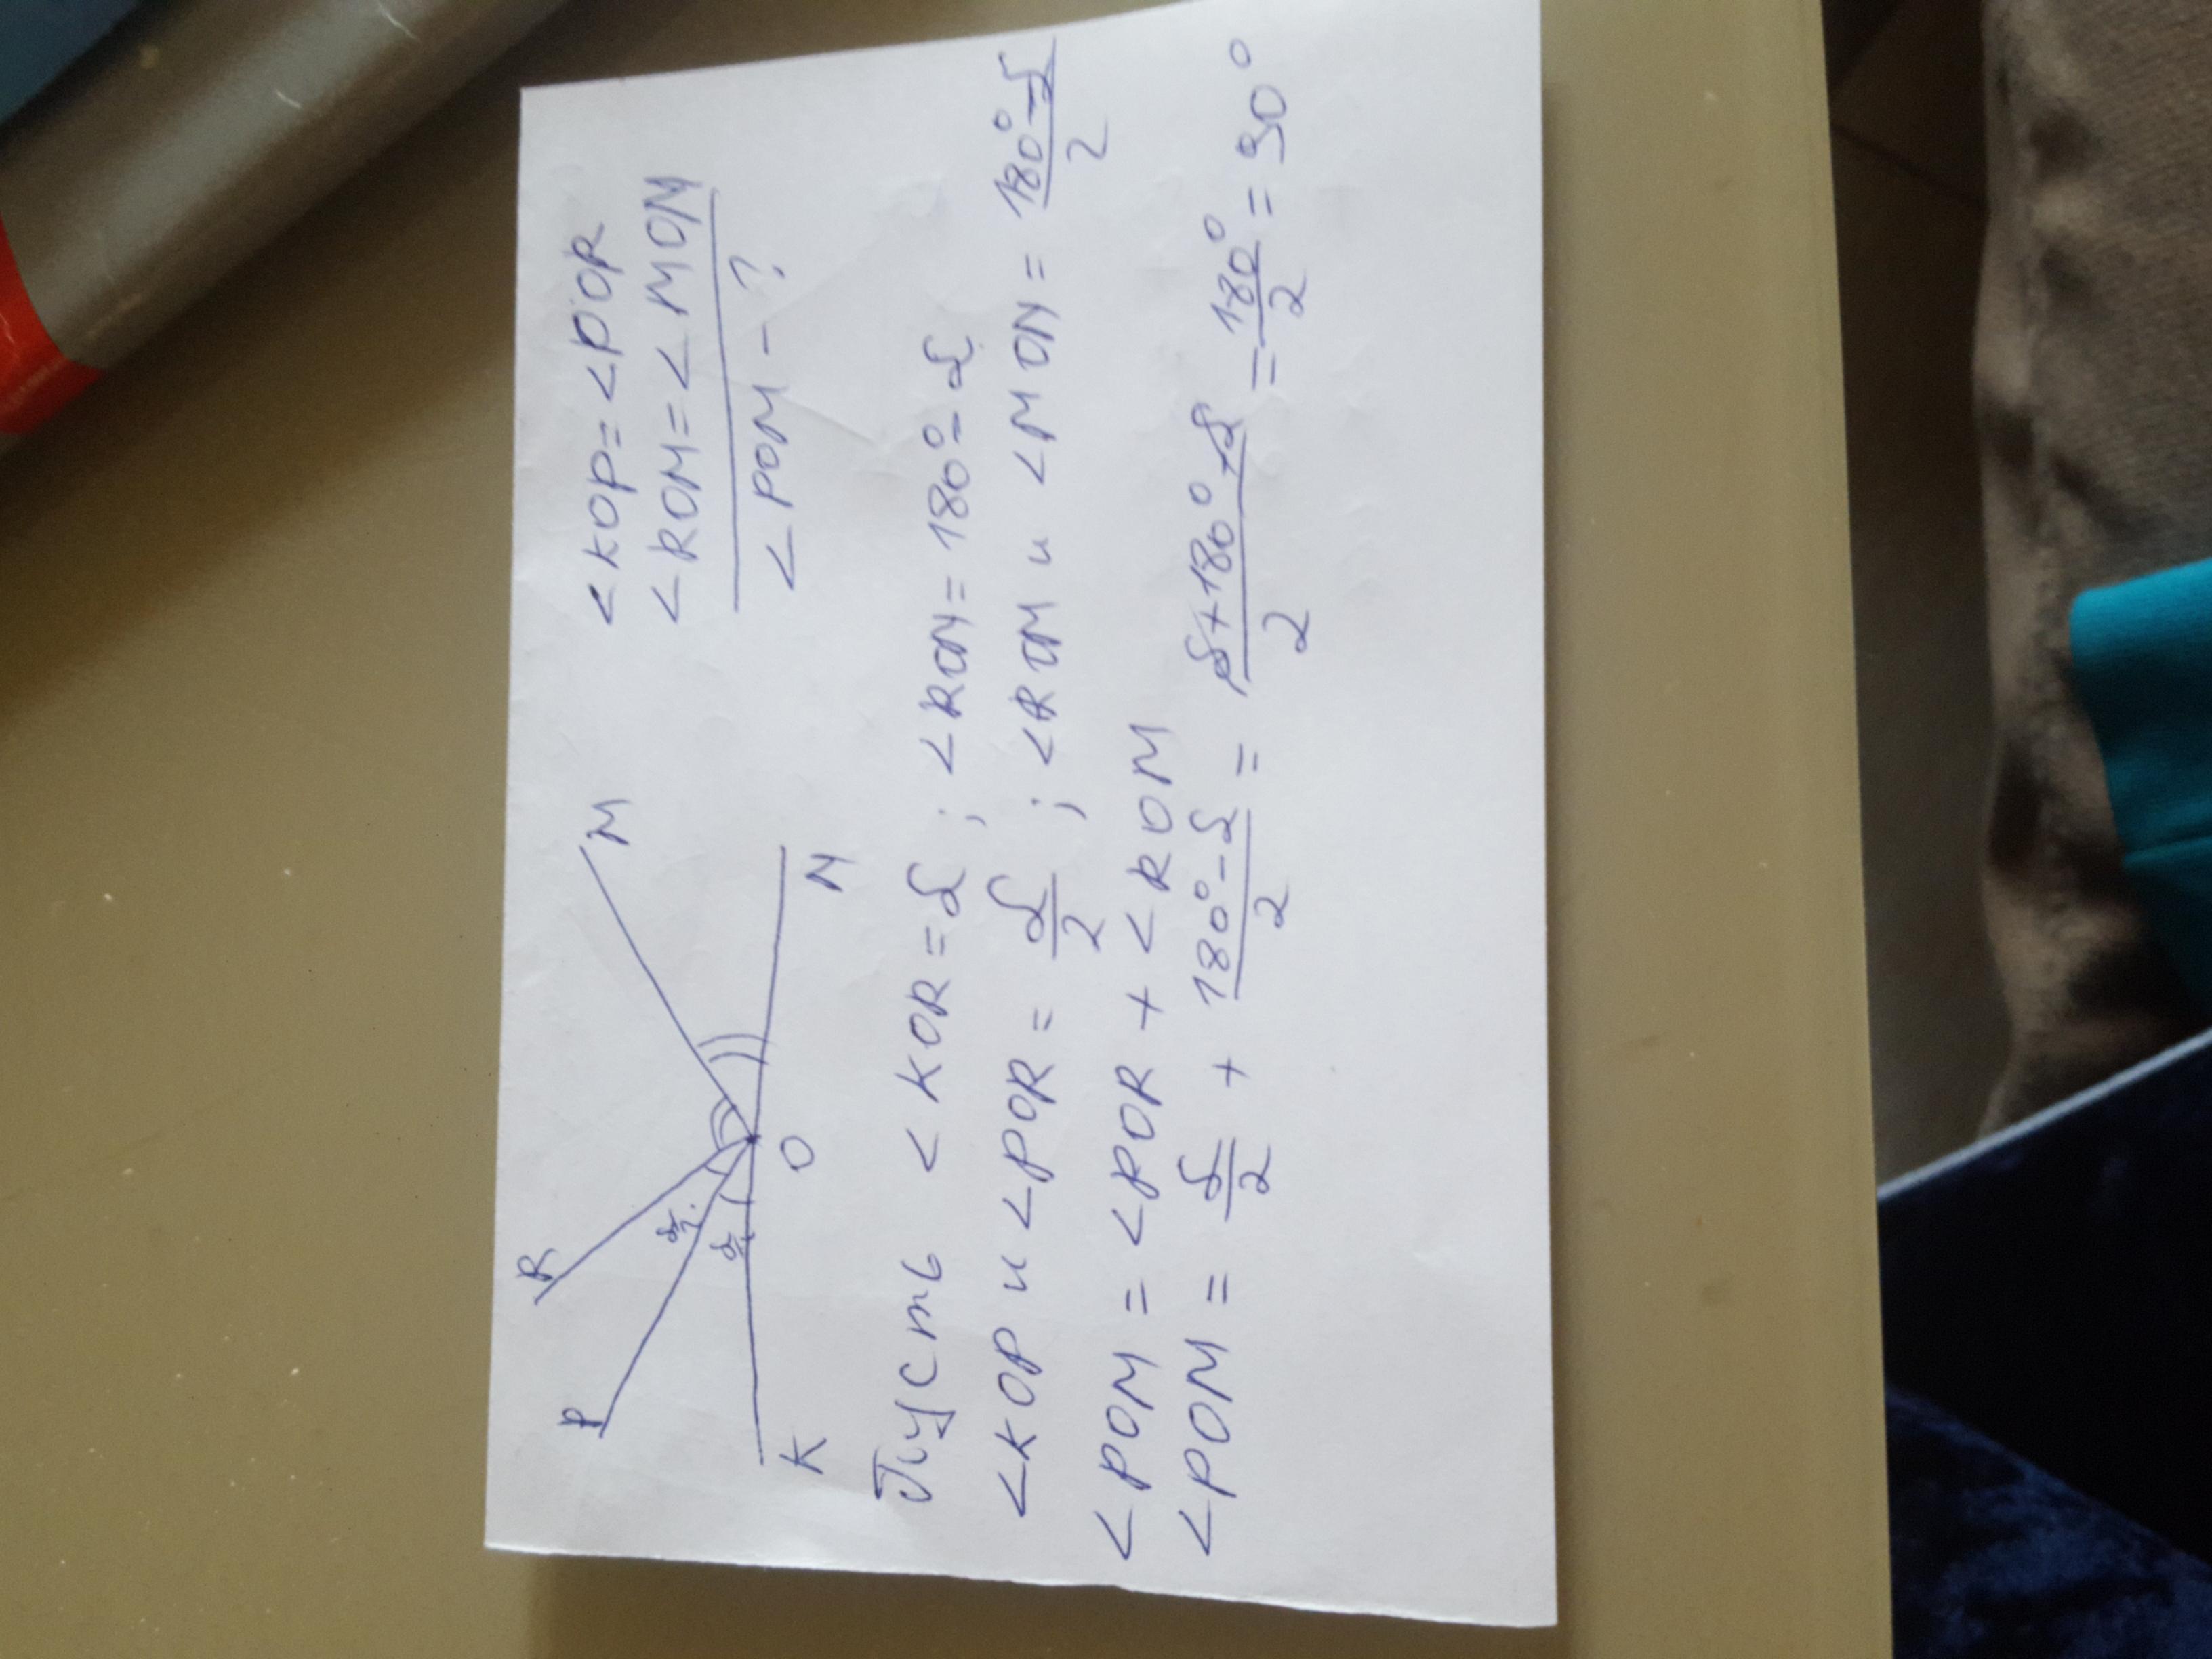 <KOP = <POR
<ROM = <MON
<POM - ?
R
P
M
α/2
α/2
K
O
N
Пусть <KOR = α ; <RON = 180° - α
<KOP и <POR = α/2 ; <ROM и <MON = 180° - α/2
<POM = <POR + <ROM
<POM = α/2 + 180° - α/2 = α + 180° - α/2 = 180°/2 = 90°